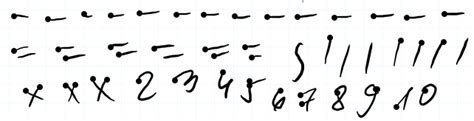 - - - - - - - - - - - - - - -
= = = = = = S | | | | | | |
x x x 2 3 4 5 6 7 8 9 10